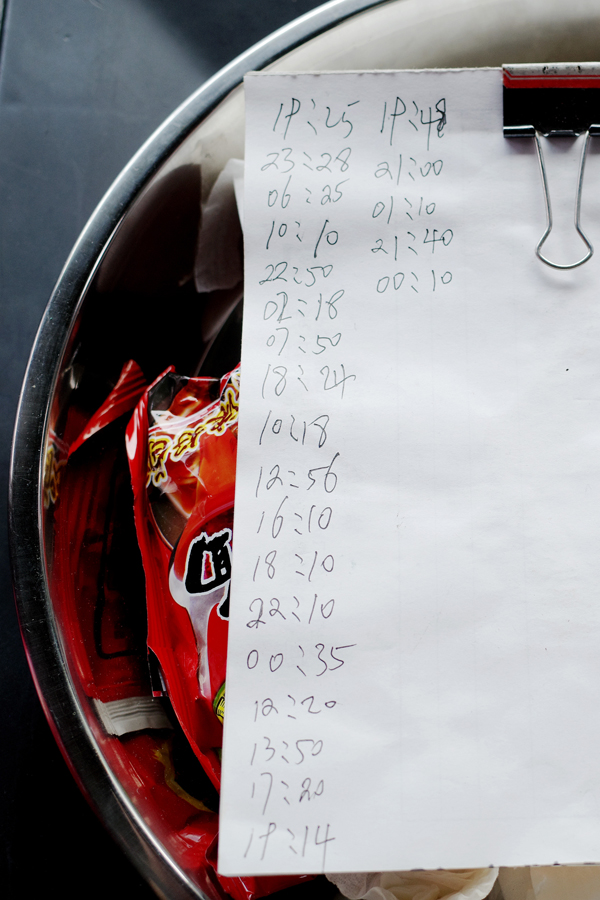 19:25 19:48
23:28 21:00
06:25 01:10
10:10 21:40
22:50 00:10
02:18
07:50
18:24
10:18
12:56
16:10
18:10
22:10
00:35
12:20
13:50
17:20
19:14